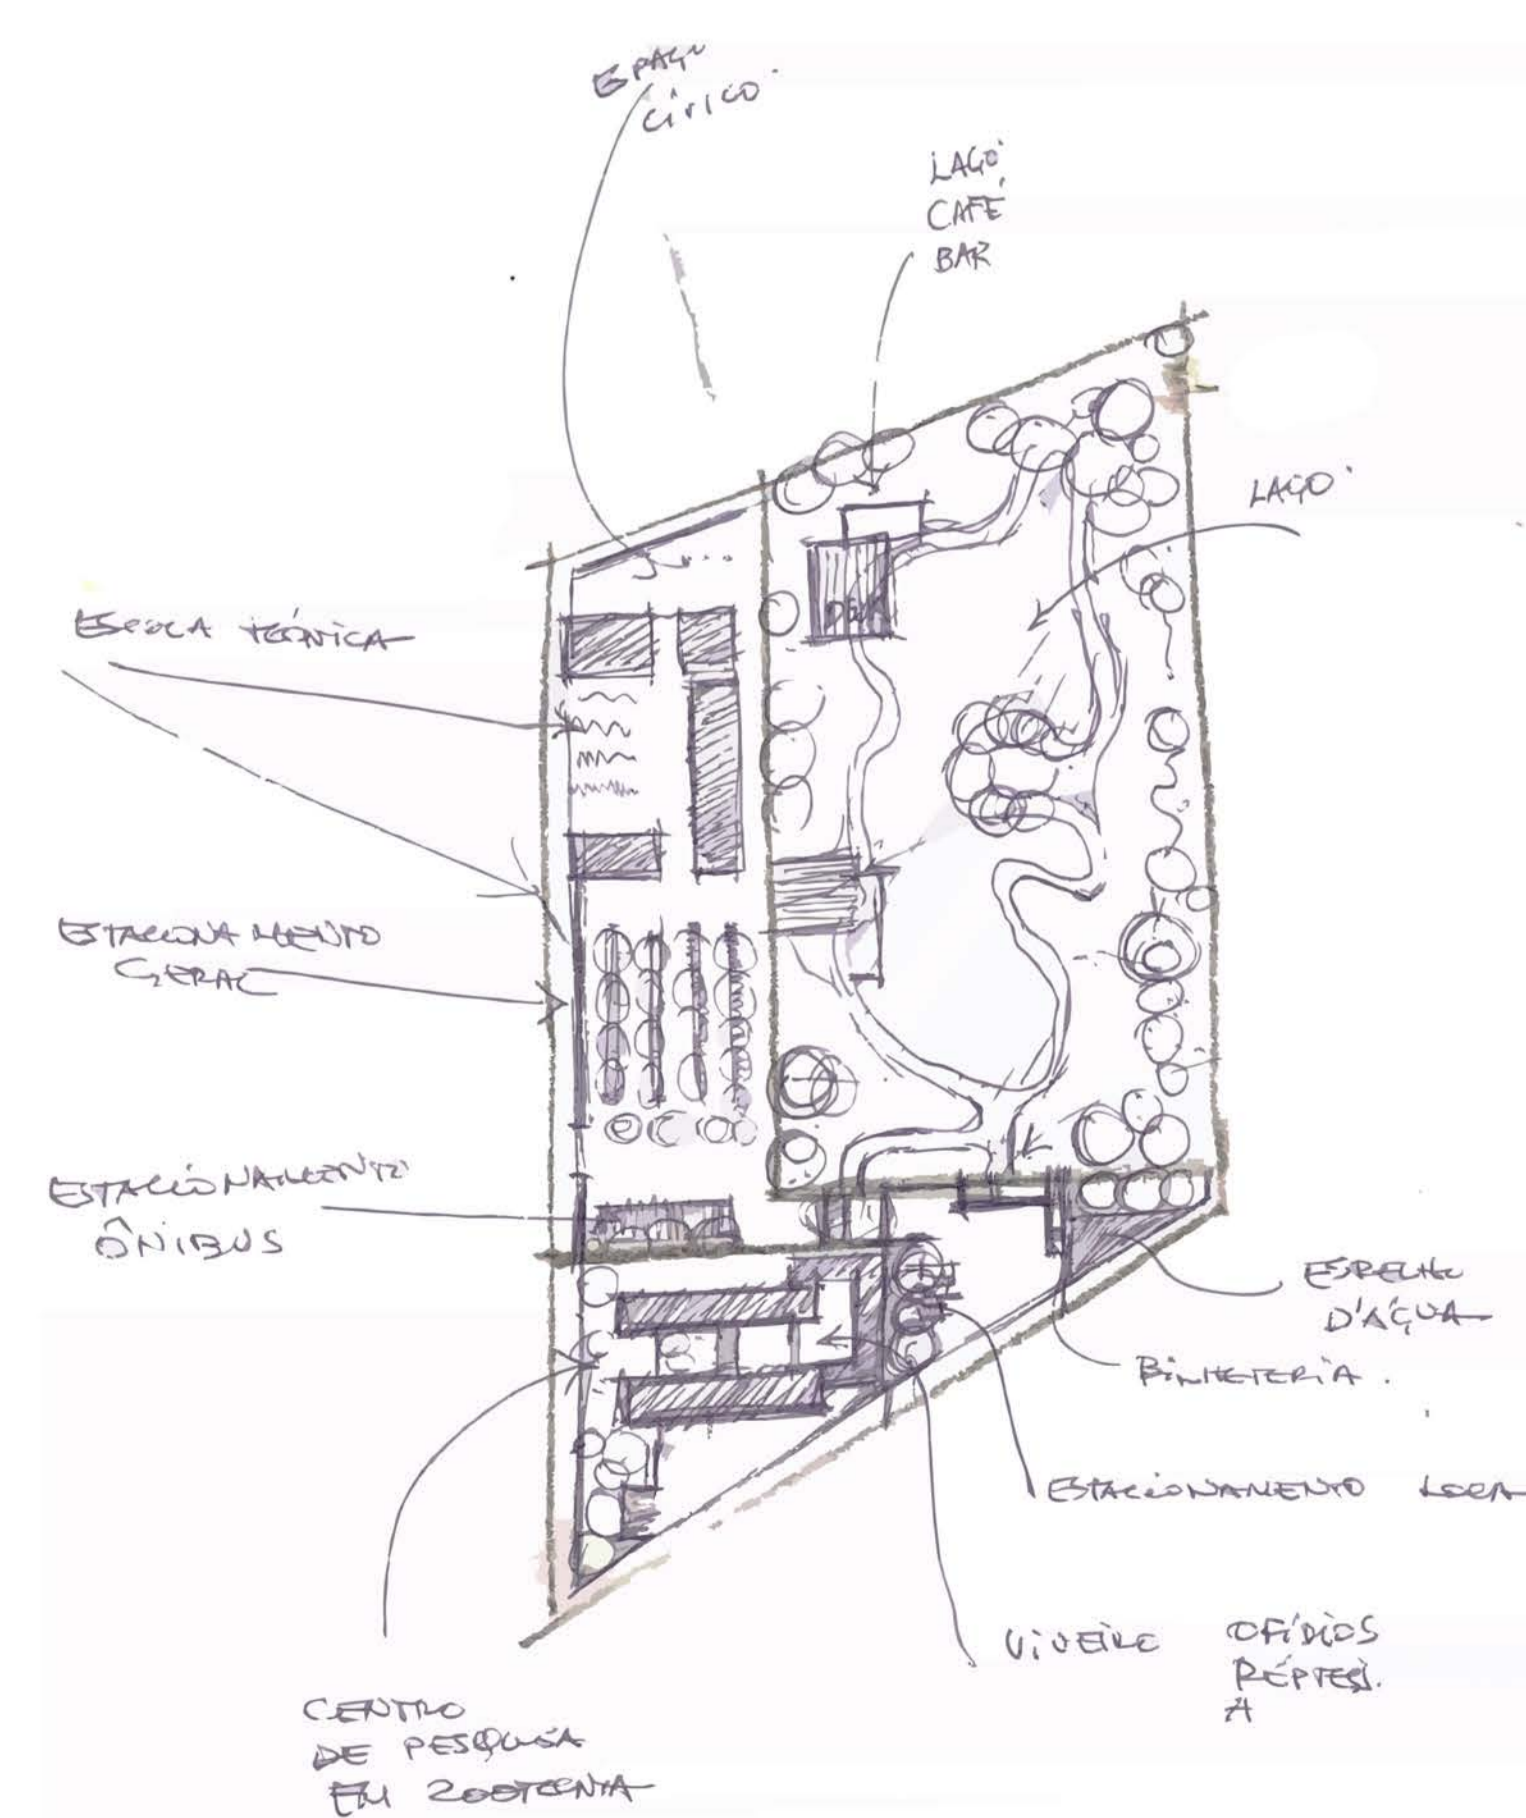 ESPAÇO
CÍVICO
LAGO
CAFÉ
BAR
LAGO
ESCOLA TÉCNICA
DECK
ESTACIONAMENTO
GERAL
ESTACIONAMENTO
ÔNIBUS
ESPELHO
D'ÁGUA
BILHETERIA.
ESTACIONAMENTO
VIVEIRO OFÍDIOS
RÉPTEIS.
A
CENTRO
DE PESQUISA
EM ZOOTECNIA